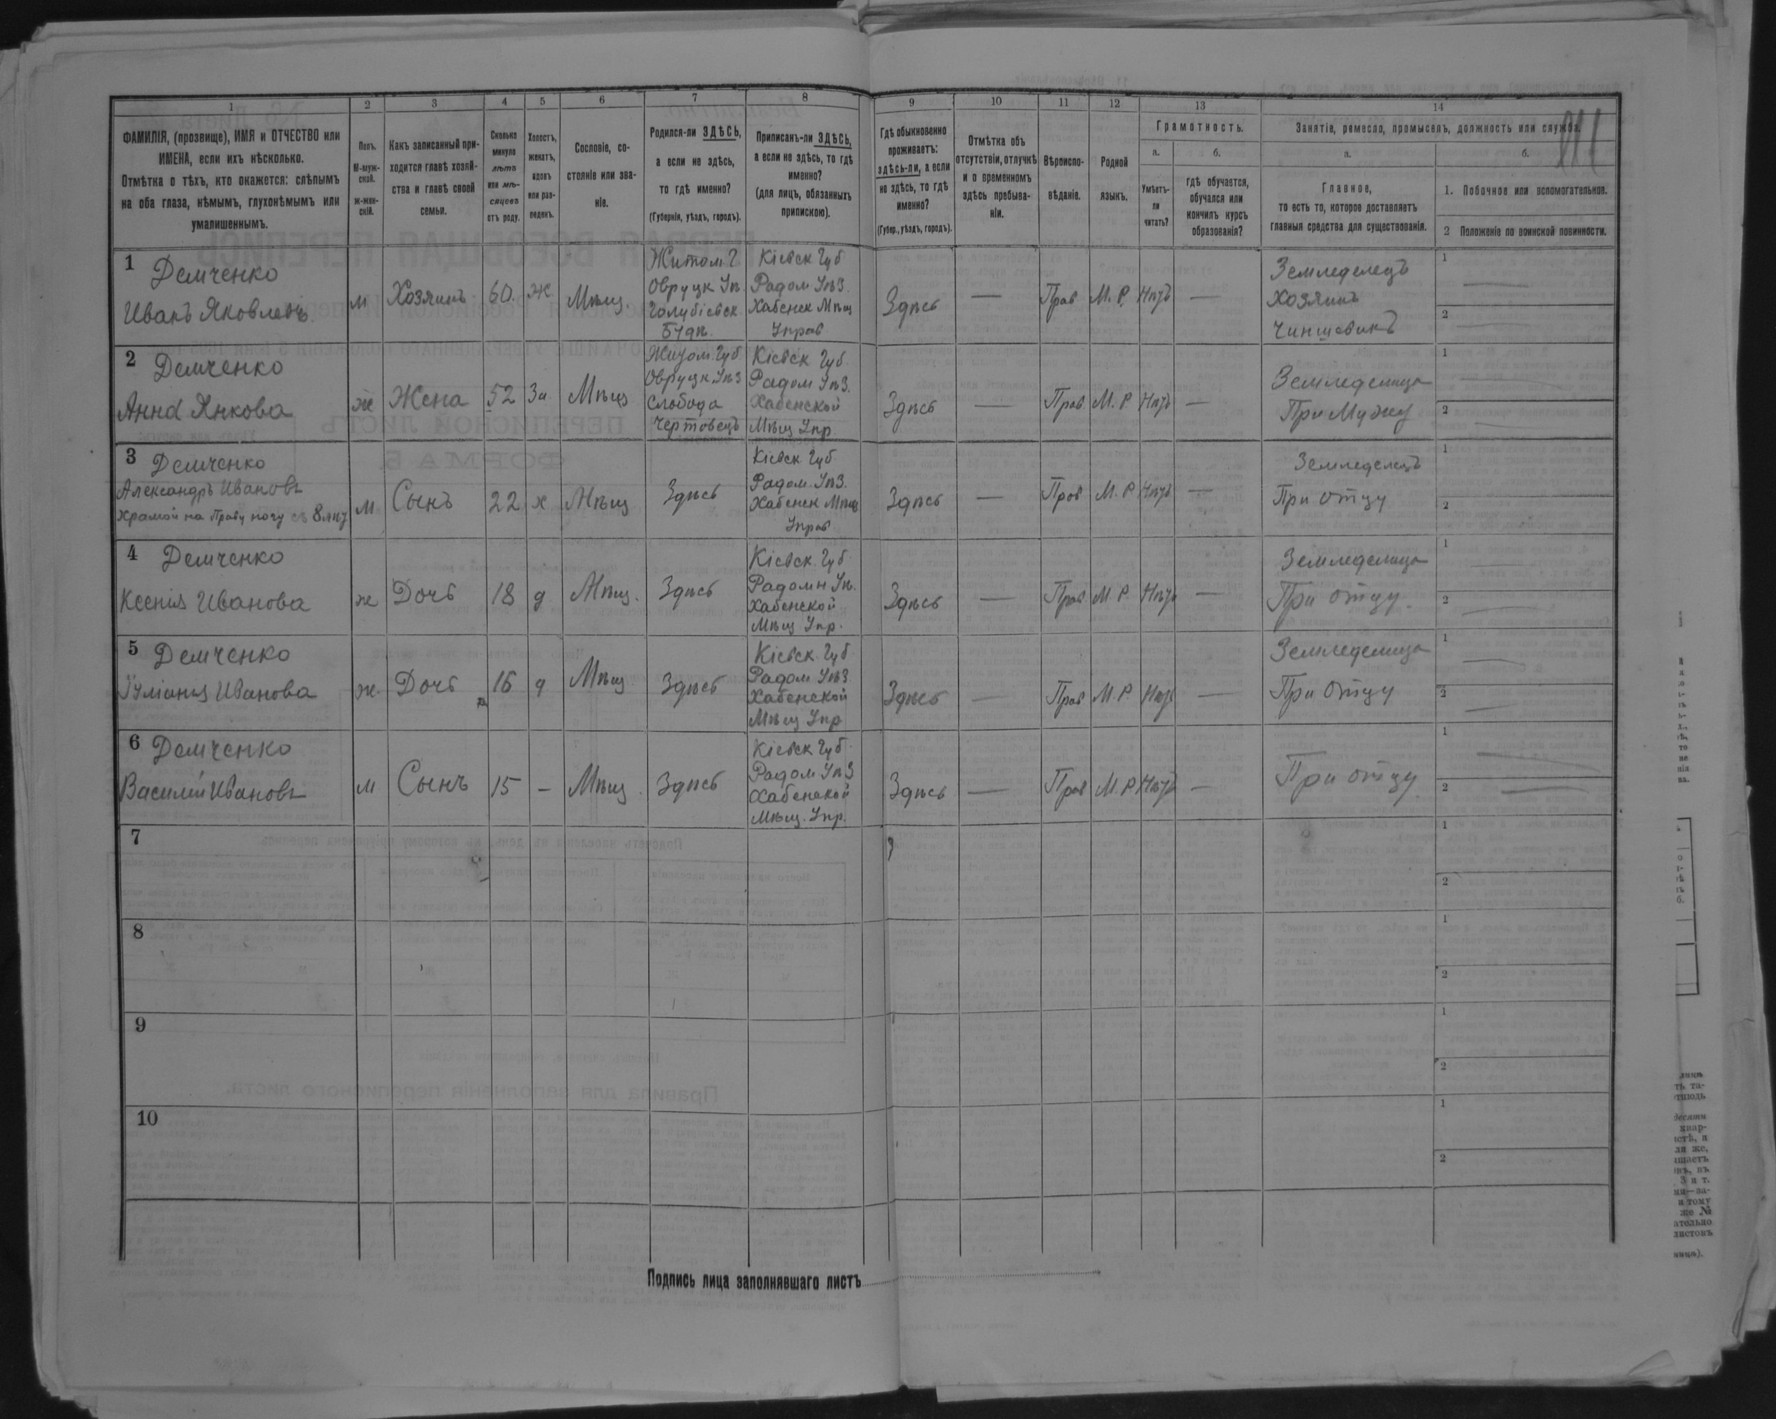 1
2
3
4
5
6
7
8
9
10
11
12
13
14
ФАМИЛІЯ, (прозвище), ИМЯ и ОТЧЕСТВО или
ИМЕНА, если ихъ нѣсколько.
Отмѣтка о тѣхъ, кто окажется: слѣпымъ
на оба глаза, нѣмымъ, глухонѣмымъ или
умалишеннымъ.
Полъ.
М-муж-
ской.
ж-жен-
скій.
Какъ записанный при-
ходится главѣ хозяй-
ства и главѣ своей
семьи.
Сколько
минуло
лѣтъ
или мѣ-
сяцевъ
отъ роду.
Холостъ,
женатъ,
вдовъ
или раз-
веденъ.
Сословіе, со-
стояніе или зва-
ніе.
Родился-ли ЗДѢСЬ,
а если не здѣсь,
то гдѣ именно?
(Губернія, уѣздъ, городъ).
Приписанъ-ли ЗДѢСЬ,
а если не здѣсь, то гдѣ
именно?
(для лицъ, обязанныхъ
припискою).
Гдѣ обыкновенно
проживаетъ:
здѣсь-ли, а если
не здѣсь, то гдѣ
именно?
(Губер., уѣздъ, городъ).
Отмѣтка объ
отсутствіи, отлучкѣ
и о временномъ
здѣсь пребыва-
ніи.
Вѣроиспо-
вѣданіе.
Родной
языкъ.
Грамотность.
а.
б.
Умѣетъ-
ли
читать?
гдѣ обучается,
обучался или
кончилъ курсъ
образованія?
Занятіе, ремесло, промыселъ, должность или служба.
а.
б.
Главное,
то есть то, которое доставляетъ
главныя средства для существованія.
1. Побочное или вспомогательное.
2 Положеніе по воинской повинности.
1
Демченко
Иванъ Яковлевъ
м
Хозяинъ
60
ж
Мѣщ.
Житом. Г
Овруцк Уѣ
Голубіевск
Будк.
Кіевск Губ
Радом Уѣз.
Хабенск Мѣщ
Управ
Здѣсь
—
Прав
М. Р
Нѣтъ
—
Земледелецъ
Хозяинъ
Чиншевикъ
1
2
2
Демченко
Анна Янкова
ж
Жена
52
За
Мѣщ
Житом. Губ.
Овруцк Уѣз
Слобода
Чертовецъ
Кіевск Губ.
Радом Уѣз.
Хабенской
Мѣщ Упр
Здѣсь
—
Прав
М. Р
Нѣтъ
—
Земледелица
При Мужу
1
2
3
Демченко
Александръ Ивановъ
Храмой на Праву ногу съ 8 лѣт
м
Сынъ
22
х
Мѣщ
Здѣсь
Кіевск Губ
Радом. Уѣз.
Хабенск Мѣщ
Управ
Здѣсь
—
Прав
М. Р
Нѣтъ
—
Земледелецъ
При отцу
1
2
4
Демченко
Ксенія Иванова
ж
Дочь
18
д
Мѣщ.
Здѣсь
Кіевск. Губ
Радом Уѣ.
Хабенской
Мѣщ Упр.
Здѣсь
—
Прав
М. Р
Нѣтъ
—
Земледелица
При отцу.
1
2
5
Демченко
Іуліанія Иванова
ж.
Дочь
16
д
Мѣщ
Здѣсь
Кіевск. Губ
Радом Уѣз
Хабенской
Мѣщ Упр
Здѣсь
—
Прав
М. Р
Нѣтъ
—
Земледелица
При Отцу
1
2
6
Демченко
Василий Ивановъ
м
Сынъ
15
–
Мѣщ.
Здѣсь
Кіевск Губ.
Радом Уѣз
Хабенской
Мѣщ. Упр.
Здѣсь
—
Прав
М. Р
Нѣтъ
—
При отцу
1
2
7
1
2
8
1
2
9
1
2
10
1
2
Подпись лица заполнявшаго листъ